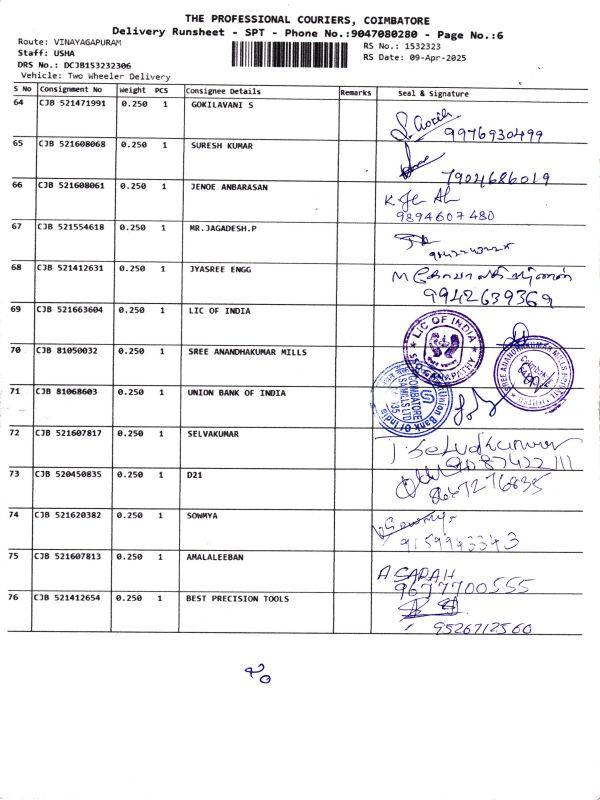 THE PROFESSIONAL COURIERS, COIMBATORE
Delivery Runsheet - SPT - Phone No.:9047080280 - Page No.:6
Route: VINAYAGAPURAM
Staff: USHA
DRS No.: DCJB153232306
Vehicle: Two Wheeler Delivery
RS No.: 1532323
RS Date: 09-Apr-2025
S No Consignment No Weight PCS Consignee Details Remarks Seal & Signature
64 CJB 521471991 0.250 1 GOKILAVANI S
9976930499
65 CJB 521608068 0.250 1 SURESH KUMAR
7904686019
66 CJB 521608061 0.250 1 JENOE ANBARASAN
9894607480
67 CJB 521554618 0.250 1 MR.JAGADESH.P
68 CJB 521412631 0.250 1 JYASREE ENGG
9942639369
69 CJB 521663604 0.250 1 LIC OF INDIA
LIC OF INDIA
70 CJB 81050032 0.250 1 SREE ANANDHAKUMAR MILLS
SREE ANANDHAKUMAR MILLS
71 CJB 81068603 0.250 1 UNION BANK OF INDIA
Union Bank Of India
COIMBATORE
72 CJB 521607817 0.250 1 SELVAKUMAR
J. Selvakumar
9087422111
73 CJB 520450835 0.250 1 D21
8667276835
74 CJB 521620382 0.250 1 SOWMYA
Sowmya
9159943343
75 CJB 521607813 0.250 1 AMALALEEBAN
A SARAH
9677700555
76 CJB 521412654 0.250 1 BEST PRECISION TOOLS
9526712560